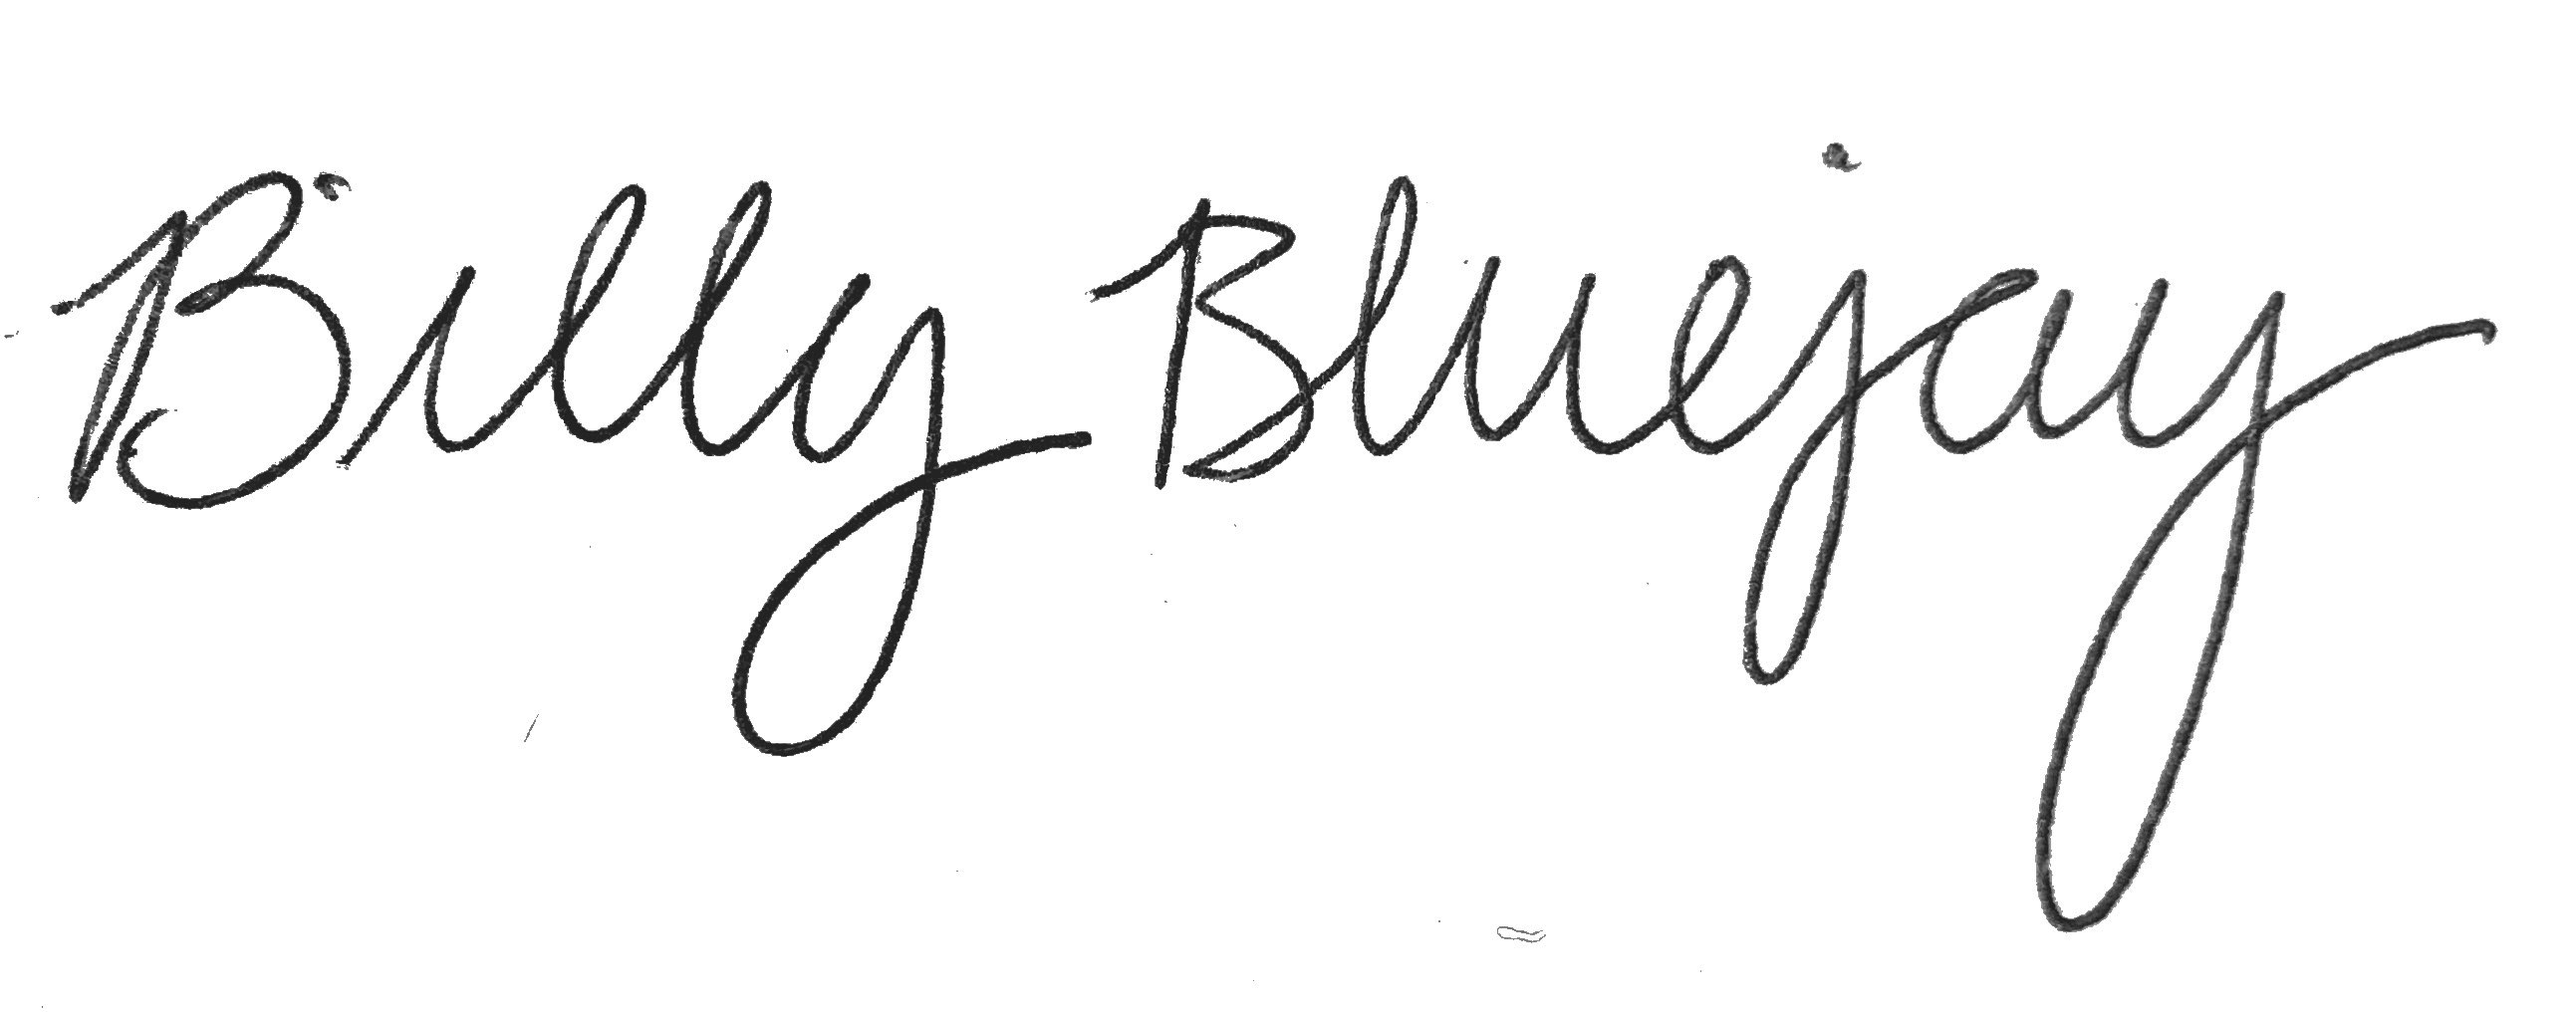 Billy Bluejay